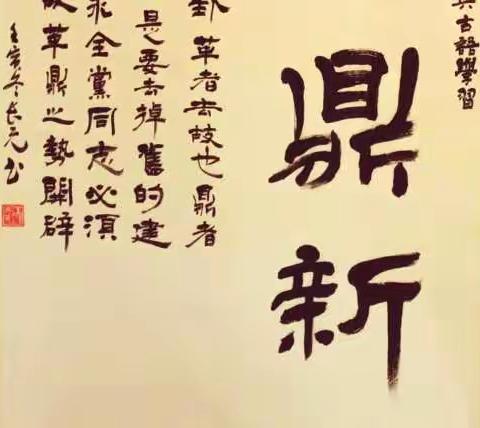 古語學習
鼎新
卦革者去故也鼎者
是要去掉舊的建
求全黨同志必須
革鼎之勢開辟
壬寅冬長元书